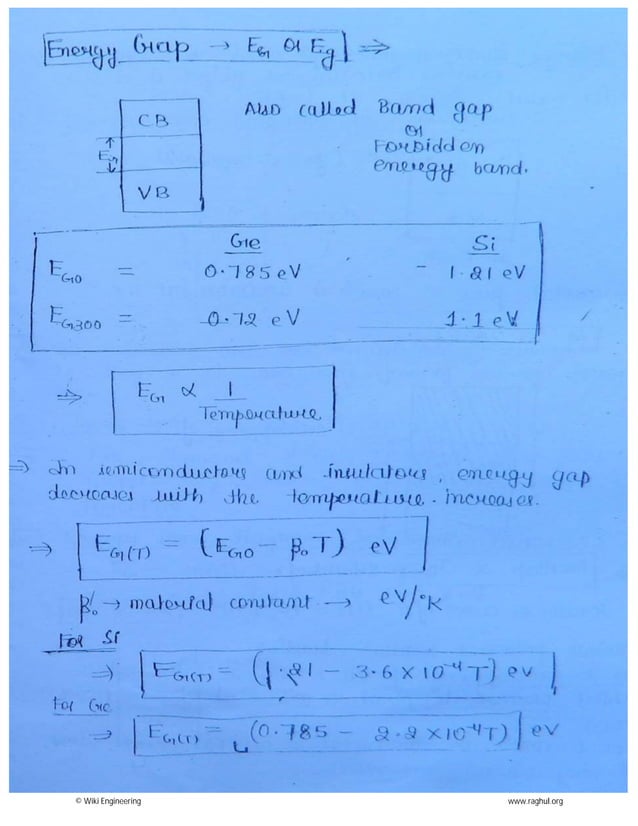 Energy Gap → EG or Eg ⇒
CB
EG
VB
Also called Band gap
or
Forbidden
energy band.
Ge Si
EG0 = 0.785 eV - 1.21 eV
EG300 = 0.72 eV 1.1 eV
⇒ EG ∝ 1/Temperature
⇒ In semiconductors and insulators, energy gap
decreases with the temperature increases.
⇒ EG(T) = (EG0 - β₀T) eV
β₀ → material constant → eV/°K
For Si
⇒ EG(T) = (1.21 - 3.6 × 10⁻⁴T) eV
For Ge
⇒ EG(T) = (0.785 - 2.2 × 10⁻⁴T) eV
© Wiki Engineering www.raghul.org